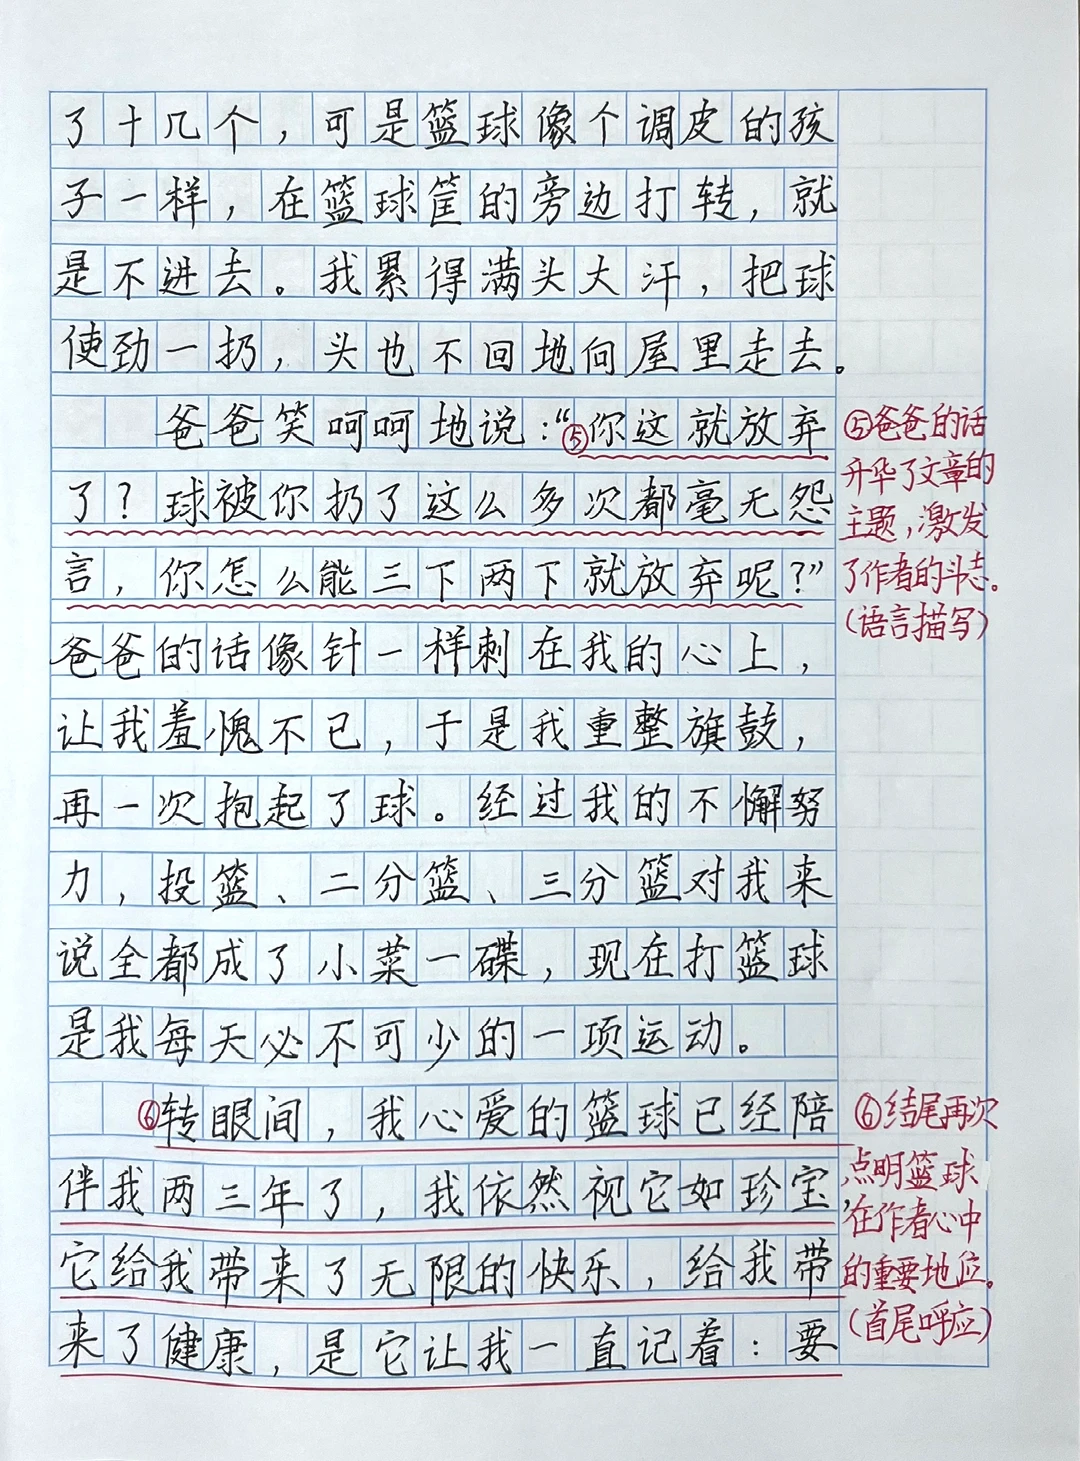 了十几个，可是篮球像个调皮的孩
子一样，在篮球筐的旁边打转，就
是不进去。我累得满头大汗，把球
使劲一扔，头也不回地向屋里走去。
爸爸笑呵呵地说：“⑤你这就放弃
了？球被你扔了这么多次都毫无怨
言，你怎么能三下两下就放弃呢？”
爸爸的话像针一样刺在我的心上，
让我羞愧不已，于是我重整旗鼓，
再一次抱起了球。经过我的不懈努
力，投篮、二分篮、三分篮对我来
说全都成了小菜一碟，现在打篮球
是我每天必不可少的一项运动。
⑥转眼间，我心爱的篮球已经陪
伴我两三年了，我依然视它如珍宝，
它给我带来了无限的快乐，给我带
来了健康，是它让我一直记着：要
⑤爸爸的话
升华了文章的
主题，激发
了作者的斗志。
（语言描写）
⑥结尾再次
点明篮球
在作者心中
的重要地位。
（首尾呼应）